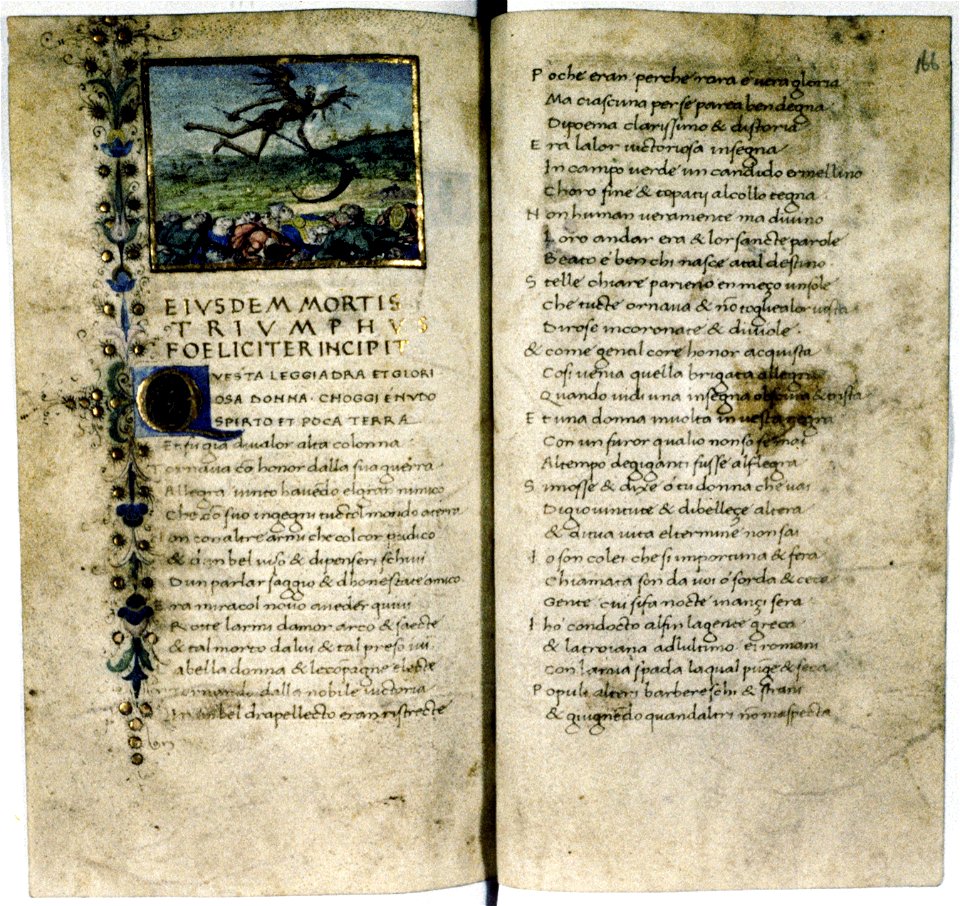 EIVSDEM MORTIS
TRIVMPHVS
FOELICITER INCIPIT
QVESTA LEGGIADRA ET GLORI
OSA DONNA · CHOGGI E NVDO
SPIRTO ET POCA TERRA
Et fu gia di valor alta colonna
Tornava cō honor dalla sua guerra
Allegra vinto havēdo el gran nimico
Che cō suo ingegni tuctol mondo aterra
Non con altre armi che col cor pudico
& dun bel viso & di penseri schivi
Dun parlar saggio & dhonestate amico
Era miracol novo a veder quivi
Rotte larmi damor arco & saecte
& tal morto da lui & tal preso ivi
La bella donna & le cōpagne electe
Tornando dalla nobile victoria
In un bel drapellecto eran ristrecte
166
Poche eran perche rara e vera gloria
Ma ciascuna per se parea ben degna
Di poema clarissimo & distoria
Era lalor victoriosa insegna
In campo verde un candido ermellino
Choro fine & topatii al collo tegna
Non human veramente ma divino
Loro andar era & lor sancte parole
Beato e ben chi nasce a tal destino
Stelle chiare parieno en meço un sole
Che tucte ornava & nō togliea lor vista
Di rose incoronate & di viole
& come gental core honor acquista
Cosi venia quella brigata allegra
Quando vidi una insegna obscura & trista
Et una donna involta in vesta negra
Con un furor qual io non so se mai
Al tempo de giganti fusse alflegra
Si mosse & dixe o tu donna che vai
Di gioventute & di belleçe altera
& di tua vita el termine non sai
Io son colei che si importuna & fera
Chiamata son da voi o sorda & ceca
Gente cui si fa nocte inançi sera
I ho condocto al fin la gente greca
& la troiana ad lultimo ei romani
Con la mia spada la qual pūge & seca
Populi altri barbereschi & strani
& giugnēdo quandaltri nō maspecta